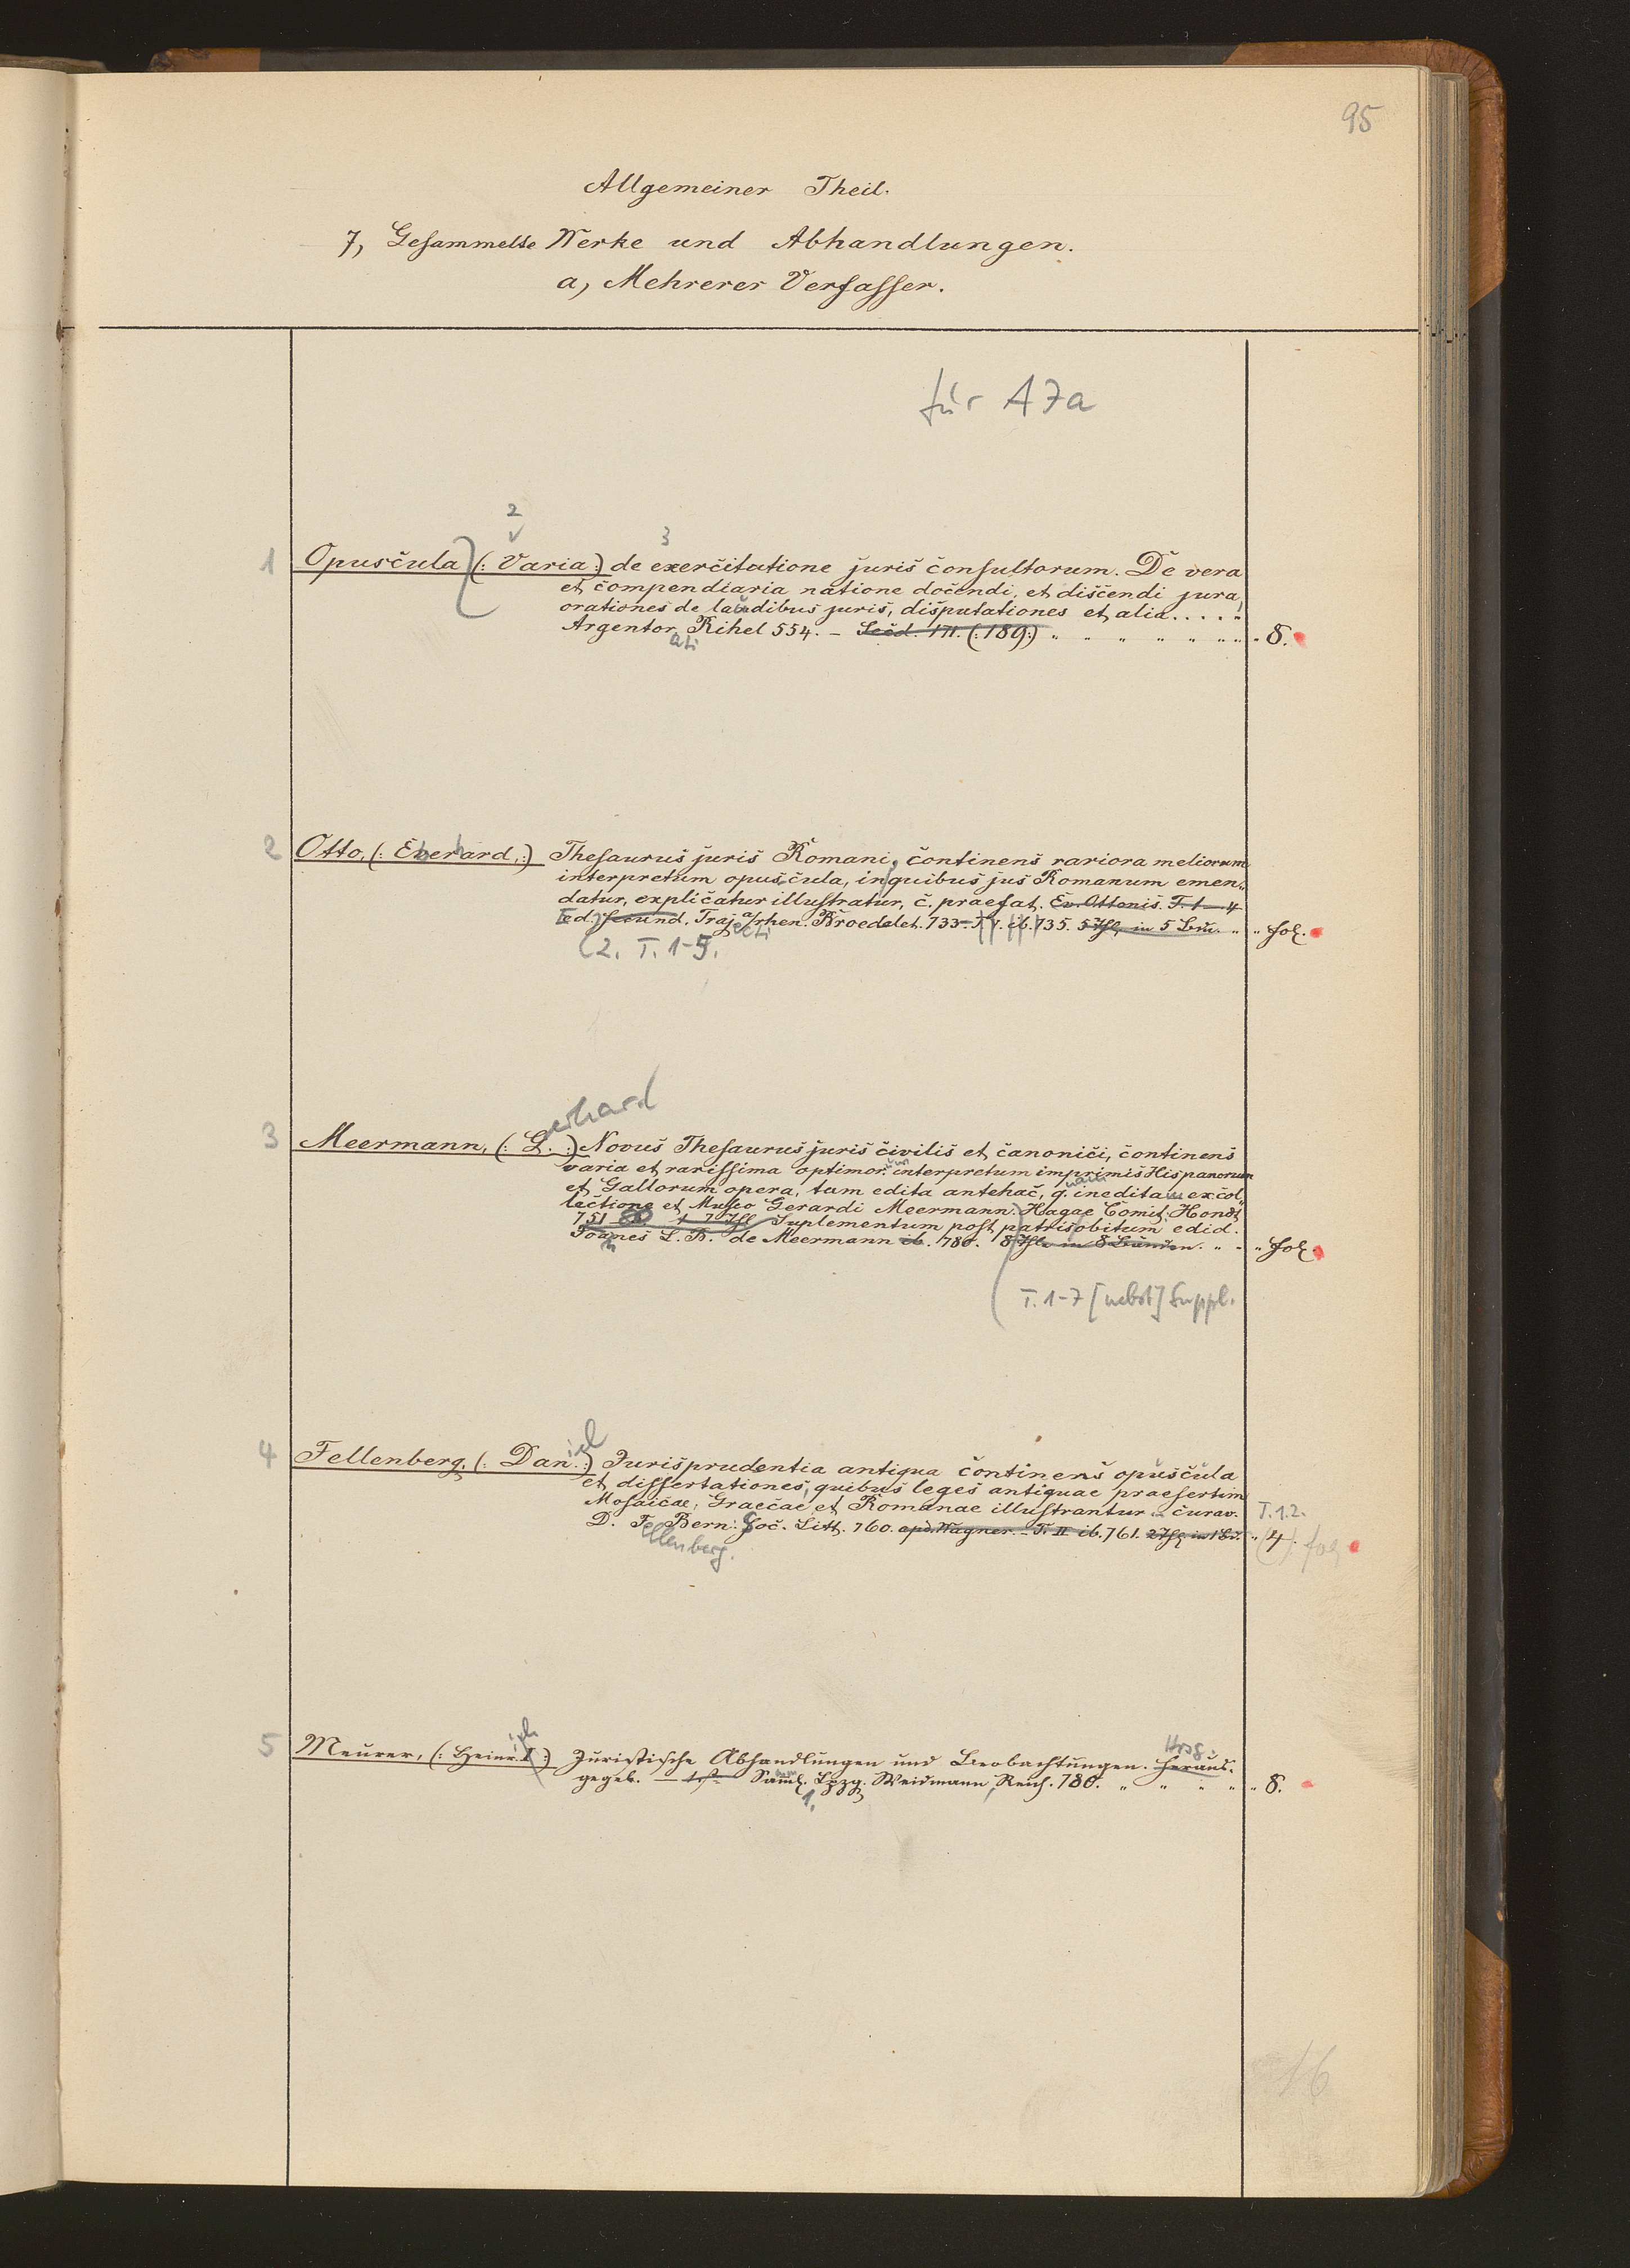 95
Allgemeiner Theil.
7, Gesammelte Werke und Abhandlungen.
a, Mehrerer Verfasser.
für A7a
2
3
1 Opuscula (: Varia :) de exercitatione juris consultorum. De vera
et compendiaria natione docendi, et discendi jura,
orationes de laudibus juris, disputationes et alia....
Argentor. Rihel 554. – 171. (: 189 :) " " " " " " " " 8.
ati
2 Otto, (: Everard, :) Thesaurus juris Romani, continens rariora meliorum
interpretum opuscula, in quibus jus Romanum emen„
datur, explicatur illustratur, c. praefat. Ev. Ottonis. T. 1–4
Ed. secund. Traj. a/rhen. Broedelet. 733– T. V. ib. 735. 5 Thl. in 5 Bdn. " " fol.
ecti
(2. T. 1-5.
erhard
3 Meermann, (: G. :) Novus Thesaurus juris civilis et canonici, continens
varia et rarissima optimor. interpretum imprimis Hispanorum
et Gallorum opera, tam edita antehac, q. inedita ex col„
lectione et Museo Gerardi Meermann. Hagae Comit. Hondt
751–80 1–7 Thl. Suplementum post patris obitum edid.
Joanes L. B. de Meermann ib. 780. 8 Thle in 8 Bänden. " " " fol.
n
T. 1-7 [nebst] Suppl.
iel
4 Fellenberg, (: Dan. :) Jurisprudentia antiqua continens opuscula
et dissertationes, quibus leges antiquae praesertim
Mosaicae, Graecae et Romanae illustrantur curav. T. 1.2.
D. F. Bern: Soc. Litt. 760. apd. Wagner. – T. II ib. 761. 2 Thl. in 1 Bd. " 4. fol
ellenberg.
ich
Hrsg.
5 Meurer, (: Heinr. :) Juristische Abhandlungen und Beobachtungen. Heraus-
gegeb. – 1ste Saml. Lpzg. Weidmann, Reich. 780. " " " " " 8.
1.
16